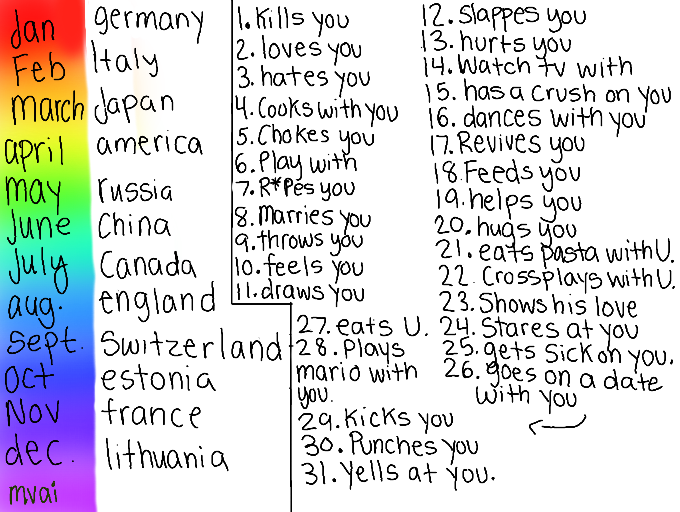 Jan germany
Feb Italy
march Japan
april america
may russia
June China
July Canada
aug. england
Sept. Switzerland
Oct estonia
Nov france
dec. lithuania
mvai
1. Kills you
2. loves you
3. hates you
4. Cooks with you
5. Chokes you
6. Play with
7. R*Pes you
8. Marries you
9. throws you
10. feels you
11. draws you
12. Slappes you
13. hurts you
14. Watch tv with
15. has a crush on you
16. dances with you
17. Revives you
18. Feeds you
19. helps you
20. hugs you
21. eats pasta with U.
22. Crossplays with U.
23. Shows his love
24. Stares at you
25. gets sick on you.
26. goes on a date
with you
27. eats U.
28. Plays
mario with
you.
29. Kicks you
30. Punches you
31. Yells at you.